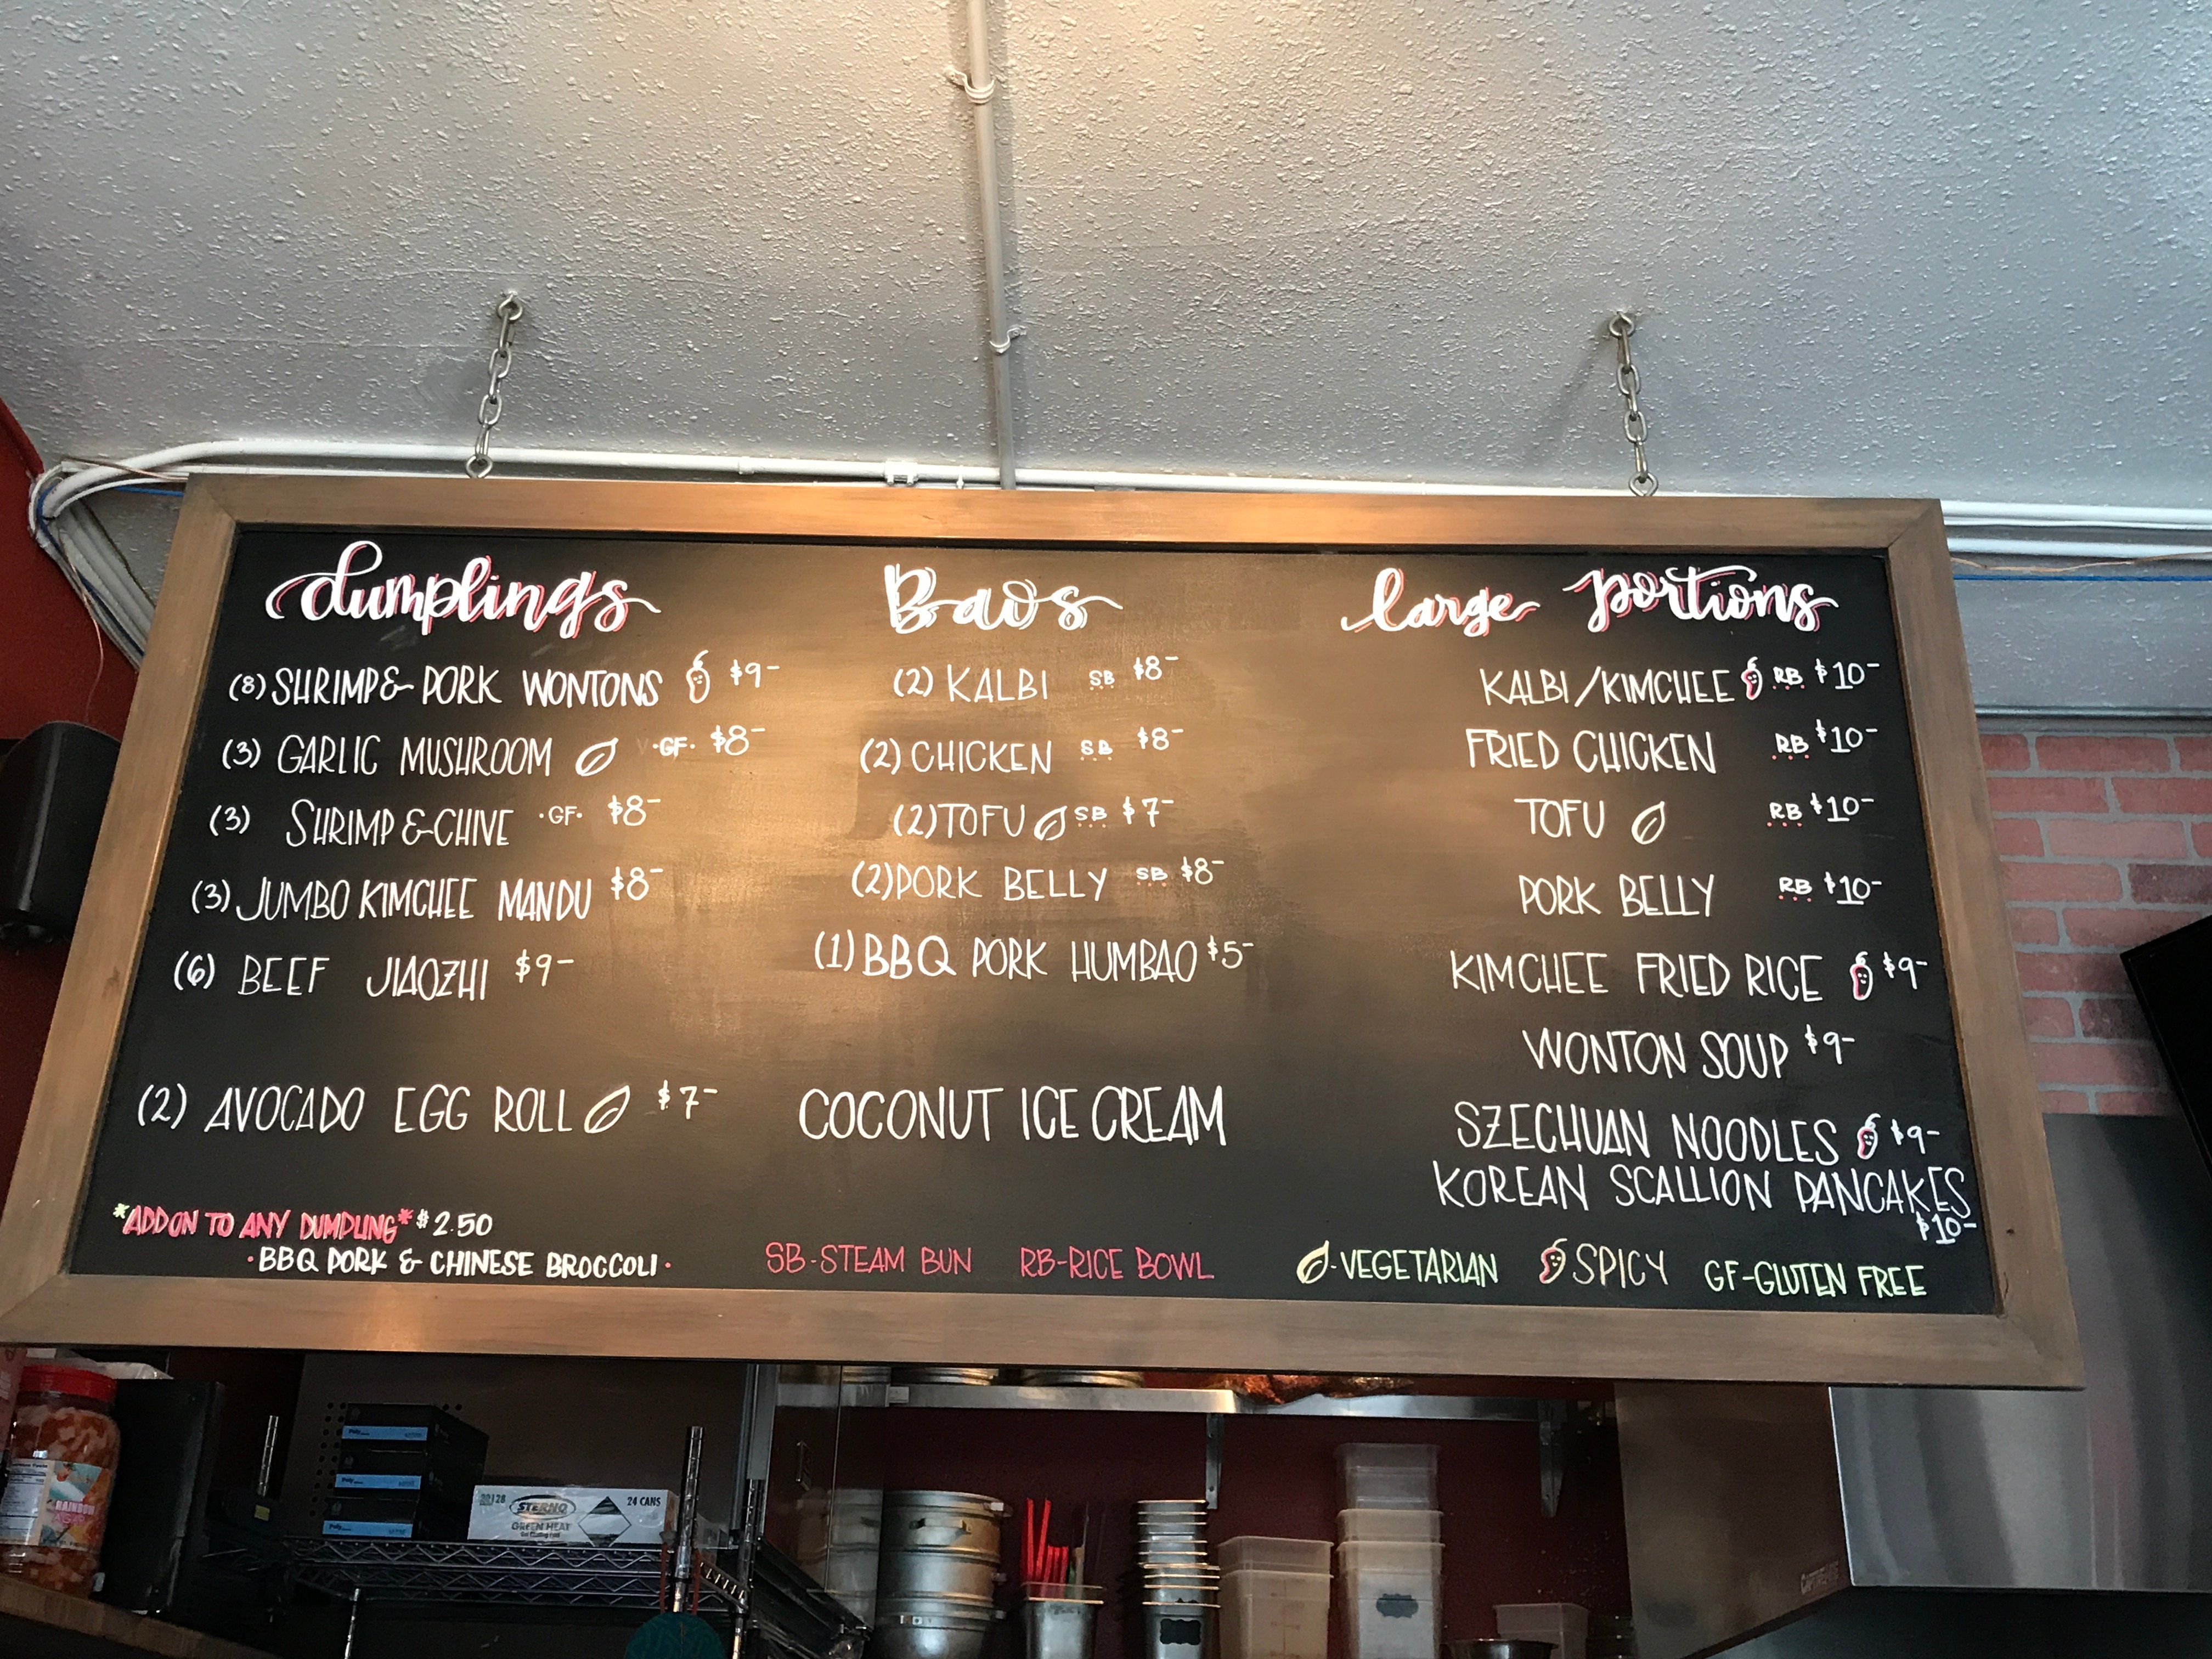 dumplings
(8) SHRIMP & PORK WONTONS $9-
(3) GARLIC MUSHROOM ·GF· $8-
(3) SHRIMP & CHIVE ·GF· $8-
(3) JUMBO KIMCHEE MANDU $8-
(6) BEEF JIAOZHI $9-
(2) AVOCADO EGG ROLL $7-
*ADD ON TO ANY DUMPLING* $2.50
·BBQ PORK & CHINESE BROCCOLI·
Baos
(2) KALBI SB $8-
(2) CHICKEN SB $8-
(2) TOFU SB $7-
(2) PORK BELLY SB $8-
(1) BBQ PORK HUMBAO $5-
COCONUT ICE CREAM
SB-STEAM BUN RB-RICE BOWL
large portions
KALBI/KIMCHEE RB $10-
FRIED CHICKEN RB $10-
TOFU RB $10-
PORK BELLY RB $10-
KIMCHEE FRIED RICE $9-
WONTON SOUP $9-
SZECHUAN NOODLES $9-
KOREAN SCALLION PANCAKES
$10-
-VEGETARIAN SPICY GF-GLUTEN FREE
STERNO
GREEN HEAT
24 CANS
RAINBOW